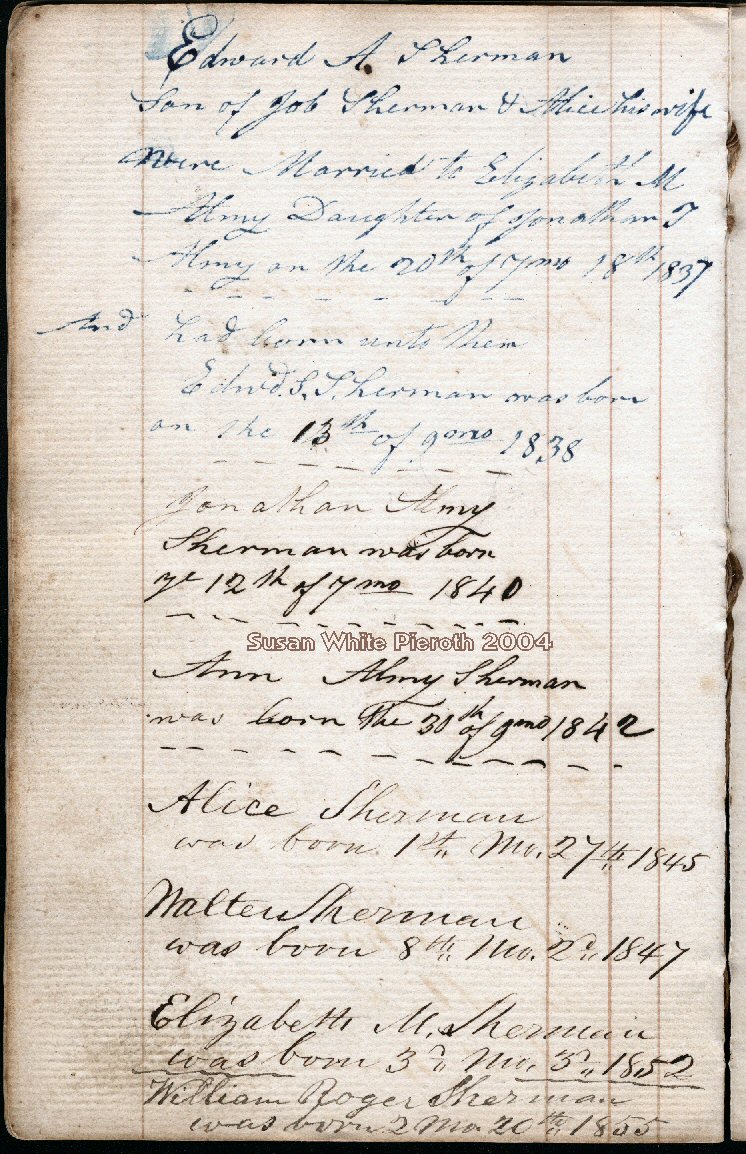 Edward A. Sherman
Son of Job Sherman & Alice his wife
Were Married to Elizabeth M
Almy Daughter of Jonathan
Almy on the 20th of 7mo 18th 1837
And had born unto them
Edwd. S. Sherman was born
on the 13th of 9mo 1838
Jonathan Almy
Sherman was born
ye 12th of 7mo 1840
Susan White Pieroth 2004
Ann Almy Sherman
was born the 30th of 9mo 1842
Alice Sherman
was born 1st Mo. 27th 1845
Walter Sherman
was born 8th Mo. 2d 1847
Elizabeth M. Sherman
was born 3d Mo. 3d 1852
William Roger Sherman
was born 2 Mo 20th 1855